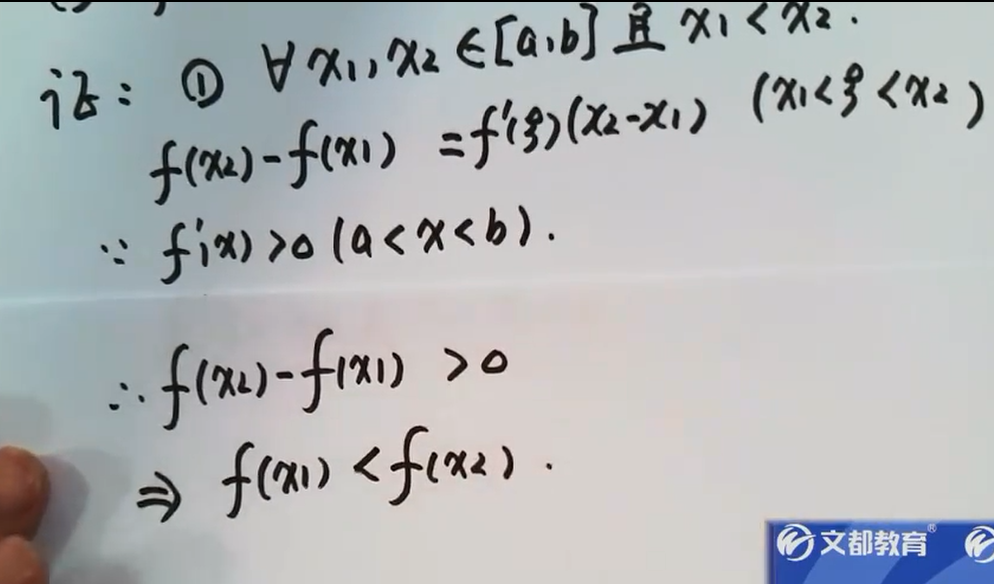 证: ① ∀ x₁, x₂ ∈ [a, b] 且 x₁ < x₂.
f(x₂) - f(x₁) = f'(ξ)(x₂ - x₁) (x₁ < ξ < x₂)
∵ f'(x) > 0 (a < x < b).
∴ f(x₂) - f(x₁) > 0
⇒ f(x₁) < f(x₂).
文都教育®